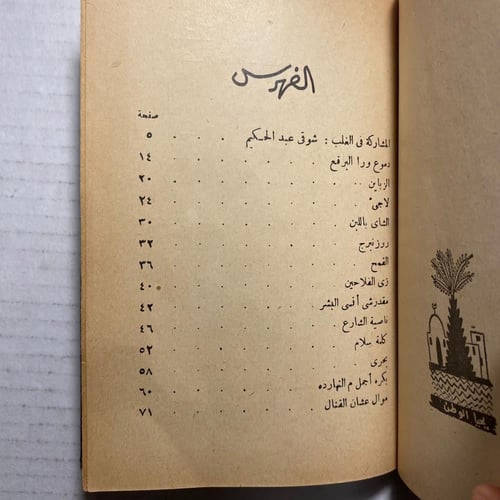 الفهرس
صفحة
المشاركة فى الغلب : شوقى عبد الحكيم ٥
دموع ورا البرقع ١٤
الزباين ٢٠
لاجئ ٢٤
الشاى باللبن ٣٠
روزنبرج ٣٢
القمح ٣٦
زى الفلاحين ٤٠
مقدرشى أنسى البشر ٤٢
ناصية الشارع ٤٦
كلمة سلام ٥٢
بحرى ٥٨
بكره أجمل م النهارده ٦٠
موال عشان القنال ٧١
يحيا الوطن